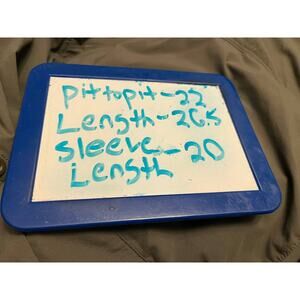 Pit to pit - 22
Length - 26.5
Sleeve - 20
Length